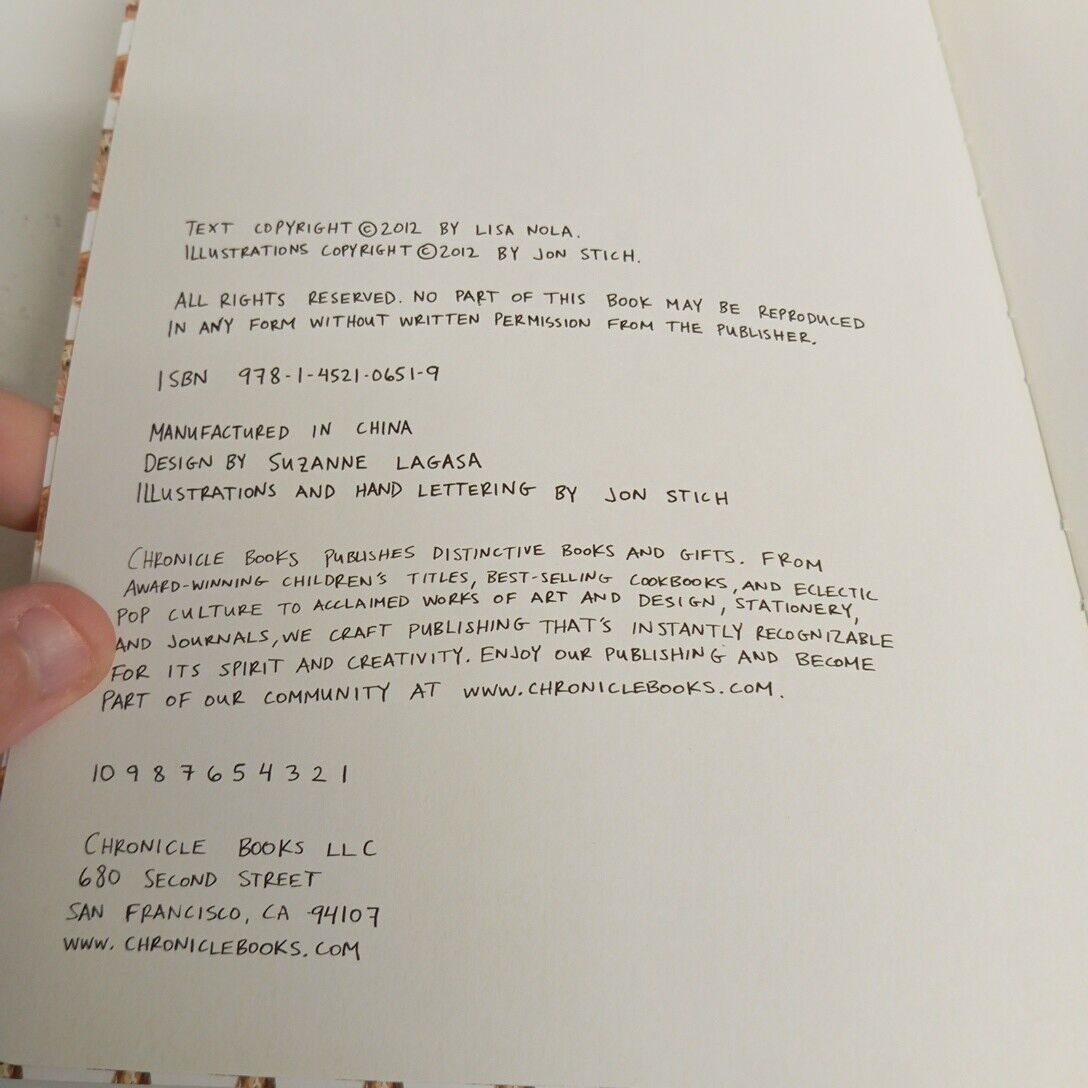 TEXT COPYRIGHT © 2012 BY LISA NOLA.
ILLUSTRATIONS COPYRIGHT © 2012 BY JON STICH.
ALL RIGHTS RESERVED. NO PART OF THIS BOOK MAY BE REPRODUCED
IN ANY FORM WITHOUT WRITTEN PERMISSION FROM THE PUBLISHER.
ISBN 978-1-4521-0651-9
MANUFACTURED IN CHINA
DESIGN BY SUZANNE LAGASA
ILLUSTRATIONS AND HAND LETTERING BY JON STICH
CHRONICLE BOOKS PUBLISHES DISTINCTIVE BOOKS AND GIFTS. FROM
AWARD-WINNING CHILDREN'S TITLES, BEST-SELLING COOKBOOKS, AND ECLECTIC
POP CULTURE TO ACCLAIMED WORKS OF ART AND DESIGN, STATIONERY,
AND JOURNALS, WE CRAFT PUBLISHING THAT'S INSTANTLY RECOGNIZABLE
FOR ITS SPIRIT AND CREATIVITY. ENJOY OUR PUBLISHING AND BECOME
PART OF OUR COMMUNITY AT WWW.CHRONICLEBOOKS.COM.
10 9 8 7 6 5 4 3 2 1
CHRONICLE BOOKS LLC
680 SECOND STREET
SAN FRANCISCO, CA 94107
WWW.CHRONICLEBOOKS.COM